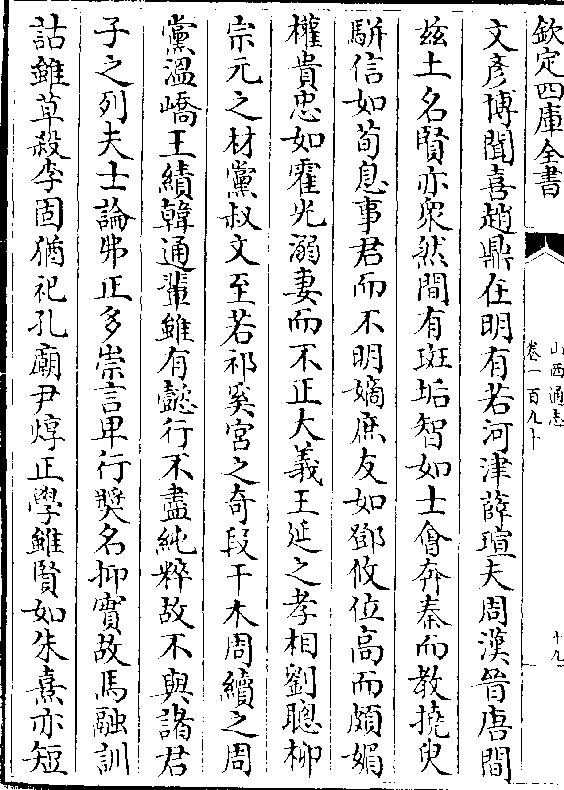 欽定四庫全書
山西通志
卷一百九十
十九
文彦博聞喜趙鼎在明有若河津薛瑄夫周漢晉唐間
兹土名賢亦衆然間有斑垢智如士會奔秦而教撓臾
駢信如荀息事君而不明嫡庶友如鄧攸位高而頗媚
權貴忠如霍光溺妻而不正大義王延之孝相劉聰柳
宗元之材黨叔文至若祁奚宮之奇段干木周續之周
黨溫嶠王績韓通輩雖有懿行不盡純粹故不與諸君
子之列夫士論弗正多崇言卑行獎名抑實故馬融訓
詁雖草殺李固猶祀孔廟尹焞正學雖賢如朱熹亦短